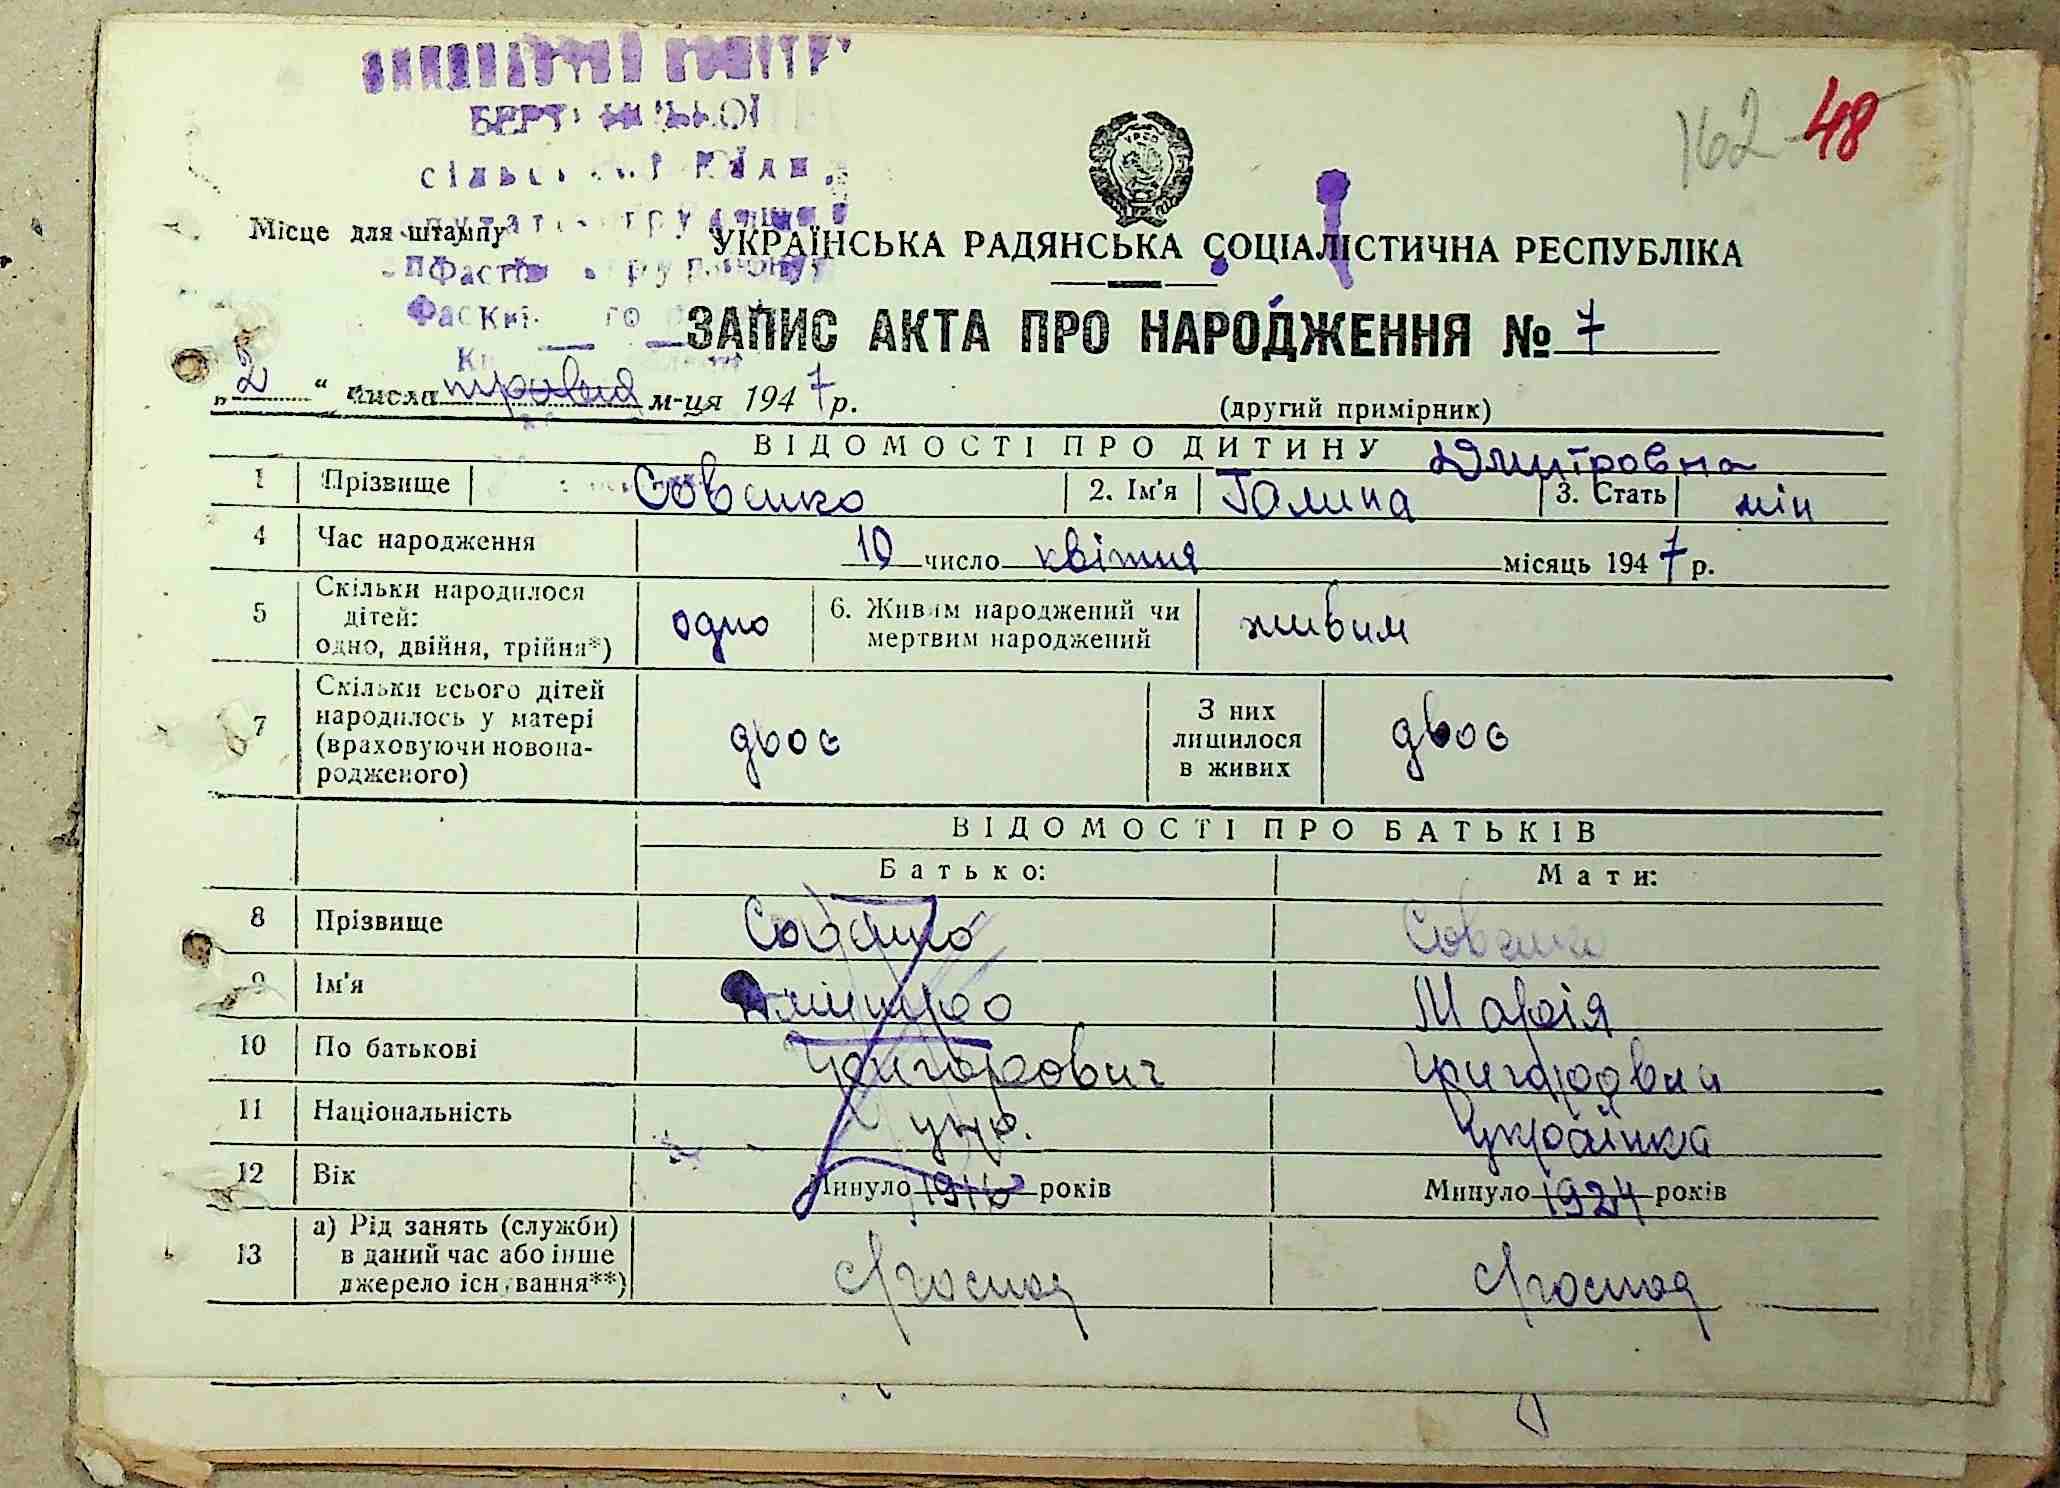 162 48
УРСР
Місце для штампу
УКРАЇНСЬКА РАДЯНСЬКА СОЦІАЛІСТИЧНА РЕСПУБЛІКА
ЗАПИС АКТА ПРО НАРОДЖЕННЯ № 7
„ 2 “ числа травня м-ця 1947 р.
(другий примірник)
ВІДОМОСТІ ПРО ДИТИНУ Дмитровна
1 Прізвище Совенко 2. Ім'я Галина 3. Стать
4 Час народження 10 число квітня місяць 1947 р.
5 Скільки народилося дітей: одно, двійня, трійня*) одно 6. Живим народжений чи мертвим народжений живим
7 Скільки всього дітей народилось у матері (враховуючи новонародженого) двоє З них лишилося в живих двоє
ВІДОМОСТІ ПРО БАТЬКІВ
Батько: Мати:
8 Прізвище
9 Ім'я Дмитро Марія
10 По батькові Григорович Григоровна
11 Національність укр. українка
12 Вік Минуло років Минуло 1924 років
13 а) Рід занять (служби) в даний час або інше джерело існування**)